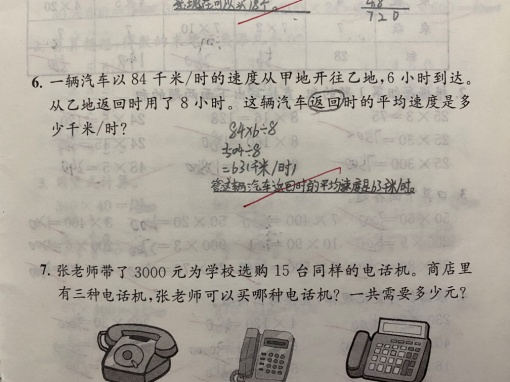 48
720
6. 一辆汽车以 84 千米/时的速度从甲地开往乙地,6 小时到达。
从乙地返回时用了 8 小时。这辆汽车返回时的平均速度是多
少千米/时?
84×6÷8
=504÷8
=63(千米/时)
答:这辆汽车返回时的平均速度是63千米/时。
7. 张老师带了 3000 元为学校选购 15 台同样的电话机。商店里
有三种电话机,张老师可以买哪种电话机? 一共需要多少元?